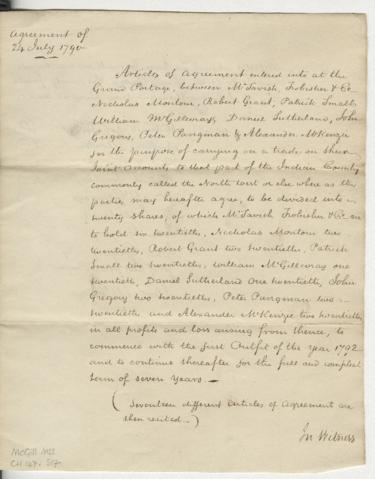 Agreement of
24 July 1790
Articles of Agreement entered into at the
Grand Portage, between McTavish, Frobisher & Co
Nicholas Montour, Robert Grant, Patrick Small
William McGilleivray, Daniel Sutherland, John
Gregory, Peter Pangman & Alexander McKenzie
for the purpose of carrying on a trade in their
Joint Accounts, to that part of the Indian Country
commonly called the North West or else where as the
parties may hereafter agree, to be divided into
twenty shares, of which McTavish Frobisher & Co are
to hold six twentieths, Nicholas Montour two
twentieths, Robert Grant two twentieths, Patrick
Small two twentieths, William McGilleivray one
twentieth, Daniel Sutherland One twentieth, John
Gregory two twentieths, Peter Pangman two
twentieths and Alexander McKenzie two twentieths
in all profits and loss arising from thence, to
commence with the first Outfit of the year 1792
and to continue thereafter for the full and compleat
term of seven years. —
(Seventeen different Articles of Agreement are
then recited. —)
In Witness
McGill MSS
CH 147. S17.